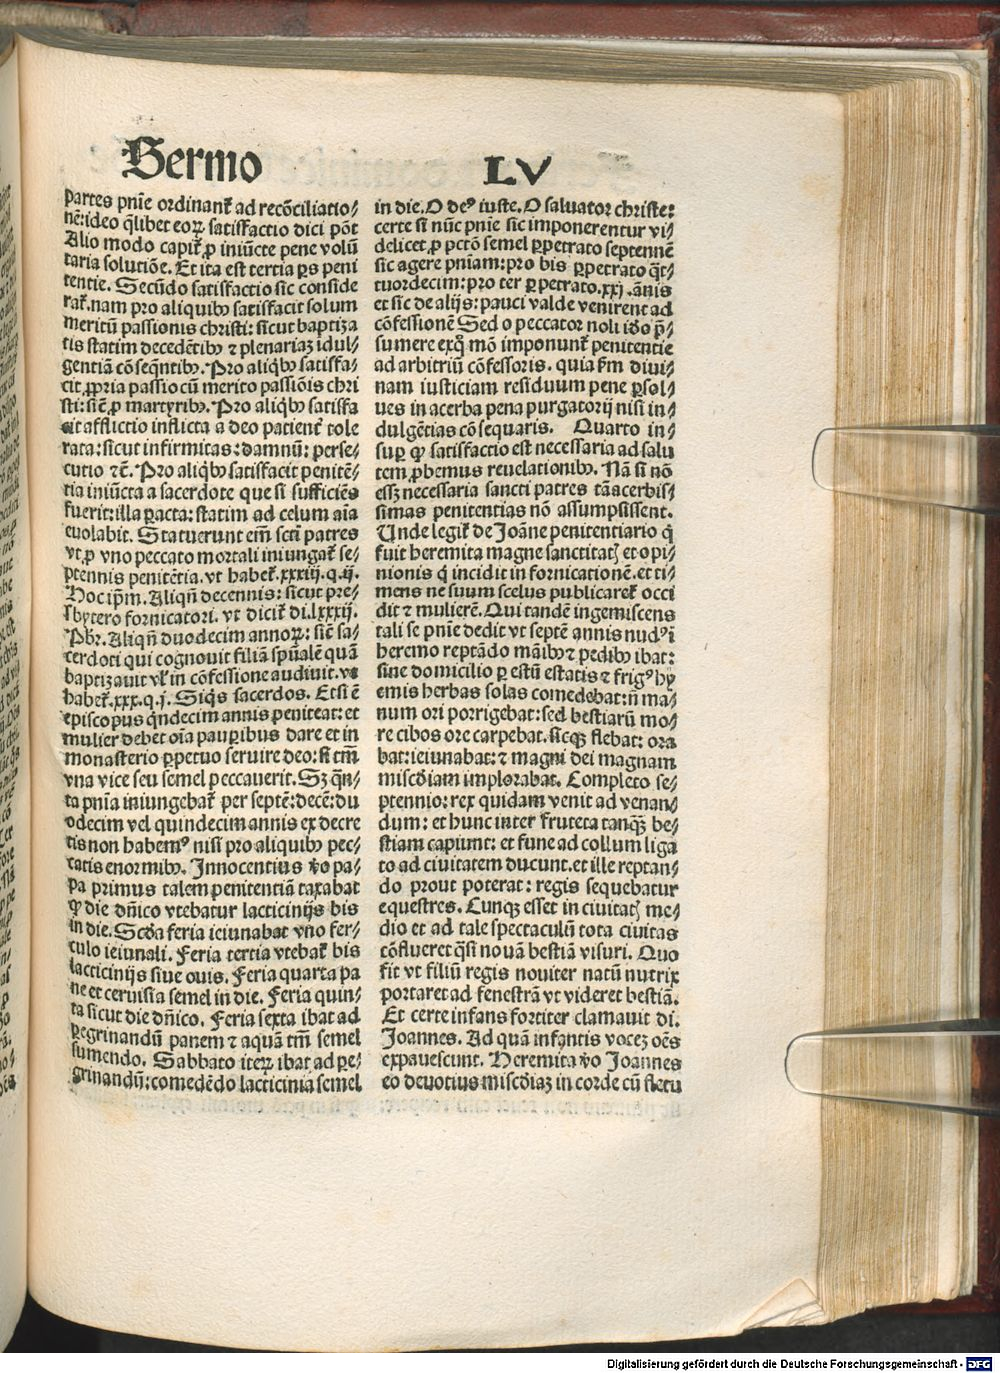 Sermo LV
partes pnīe ordinant̄ ad recōciliatio⸗
nē: ideo q̄libet eoꝝ satisfactio dici pōt
Alio modo capit̄ ꝓ iniūcte pene volū
taria solutiōe. Et ita est tertia ꝑs peni
tentie. Secūdo satisfactio sic conside
rat̄. nam pro aliquibꝰ satisfacit solum
meritū passionis christi: sicut baptiza
tis statim decedētibꝰ ⁊ plenariaꝫ idul⸗
gentiā cōseq̄ntibꝰ. Pro aliq̇bꝰ satisfa⸗
cit ꝓpria passio cū merito passiōis chri
sti: sic̄ ꝓ martyribꝰ. Pro aliq̇bꝰ satisfa
cit afflictio inflicta a deo patient̄ tole
rata: sicut infirmitas: damnū: perse⸗
cutio ⁊c̄. Pro aliq̇bꝰ satisfacit penitē⸗
tia iniūcta a sacerdote que si sufficiēs
fuerit: illa ꝑacta: statim ad celum aīa
euolabit. Statuerunt em̄ scti patres
vt ꝓ vno peccato mortali iniungat̄ se⸗
ptennis penitētia. vt habet̄. xxxiij. q. ij.
Hoc ipm̄. Aliqn̄ decennis: sicut pre⸗
sbytero fornicatori. vt dicit̄ di. lxxxij.
Pbr̄. Aliqn̄ duodecim annoꝝ: sic̄ sa⸗
cerdoti qui cognouit filiā spūalē quā
baptizauit vl̄ in cōfessione audiuit. vt
habet̄. xxx. q. j. Siq̇s sacerdos. Et si ē
episcopus q̇ndecim annis peniteat: et
mulier debet oīa pauꝑibus dare et in
monasterio ꝑpetuo seruire deo: si tm̄
vna vice seu semel peccauerit. Sꝫ q̄n⸗
ta pnīa iniungebat̄ per septē: decē: du
odecim vel quindecim annis ex decre
tis non habemꝰ nisi pro aliquibꝰ pec⸗
catis enormibꝰ. Innocentius v̄o pa⸗
pa primus talem penitentiā taxabat
ꝙ die dn̄ico vtebatur lacticinijs bis
in die. Scd̄a feria ieiunabat vno fer⸗
culo ieiunali. Feria tertia vtebat̄ bis
lacticinijs siue ouis. Feria quarta pa
ne et ceruisia semel in die. Feria quin⸗
ta sicut die dn̄ico. Feria sexta ibat ad
ꝑegrinandū panem ⁊ aquā tm̄ semel
sumendo. Sabbato iteꝝ ibat ad ꝑe⸗
grinandū: comedēdo lacticinia semel
in die. O deꝰ iuste. O saluator christe:
certe si nūc pnīe sic imponerentur vi⸗
delicet, ꝓ pctō semel ꝑpetrato septennē
sic agere pnīam: pro bis ꝑpetrato q̄t⸗
tuordecim: pro ter ꝑpetrato. xxj. ānis
et sic de alijs: pauci valde venirent ad
cōfessionē Sed o peccator noli id̄o p̄⸗
sumere ex q̇ mō imponunt̄ penitentie
ad arbitriū cōfessoris. quia fm̄ diui⸗
nam iusticiam residuum pene ꝑsol⸗
ues in acerba pena purgatorij nisi in⸗
dulgētias cōsequaris. Quarto in⸗
suꝑ ꝙ satisfactio est necessaria ad salu
tem ꝓbemus reuelationibꝰ. Nā si nō
esꝫ necessaria sancti patres tā acerbis⸗
simas penitentias nō assumpsissent.
Unde legit̄ de Joāne penitentiario q̇
fuit heremita magne sanctitatꝭ et opi⸗
nionis q̇ incidit in fornicationē. et ti⸗
mens ne suum scelus publicaret̄ occi
dit ⁊ mulierē. Qui tandē ingemiscens
tali se pnīe dedit vt septē annis nudꝰ ī
heremo reptādo māibꝰ ⁊ pedibꝰ ibat:
sine domicilio ꝑ estū estatis ⁊ frigꝰ hy
emis herbas solas comedebat: n̄ ma⸗
num ori porrigebat: sed bestiarū mo⸗
re cibos ore carpebat. sicqꝫ flebat: ora
bat: ieiunabat: ⁊ magni dei magnam
miscd̄iam implorabat. Completo se⸗
ptennio: rex quidam venit ad venan⸗
dum: et hunc inter fruteta tanqꝫ be⸗
stiam capiunt: et fune ad collum liga
to ad ciuitatem ducunt. et ille reptan⸗
do prout poterat: regis sequebatur
equestres. Cunqꝫ esset in ciuitatꝭ me⸗
dio et ad tale spectaculū tota ciuitas
cōflueret q̄si nouā bestiā visuri. Quo
fit vt filiū regis nouiter natū nutrix
portaret ad fenestrā vt videret bestiā.
Et certe infans fortiter clamauit di.
Joannes. Ad quā infantis vocē oēs
expauescunt. Heremita v̄o Joannes
eo deuotius miscd̄iaꝫ in corde cū fletu
Digitalisierung gefördert durch die Deutsche Forschungsgemeinschaft - DFG